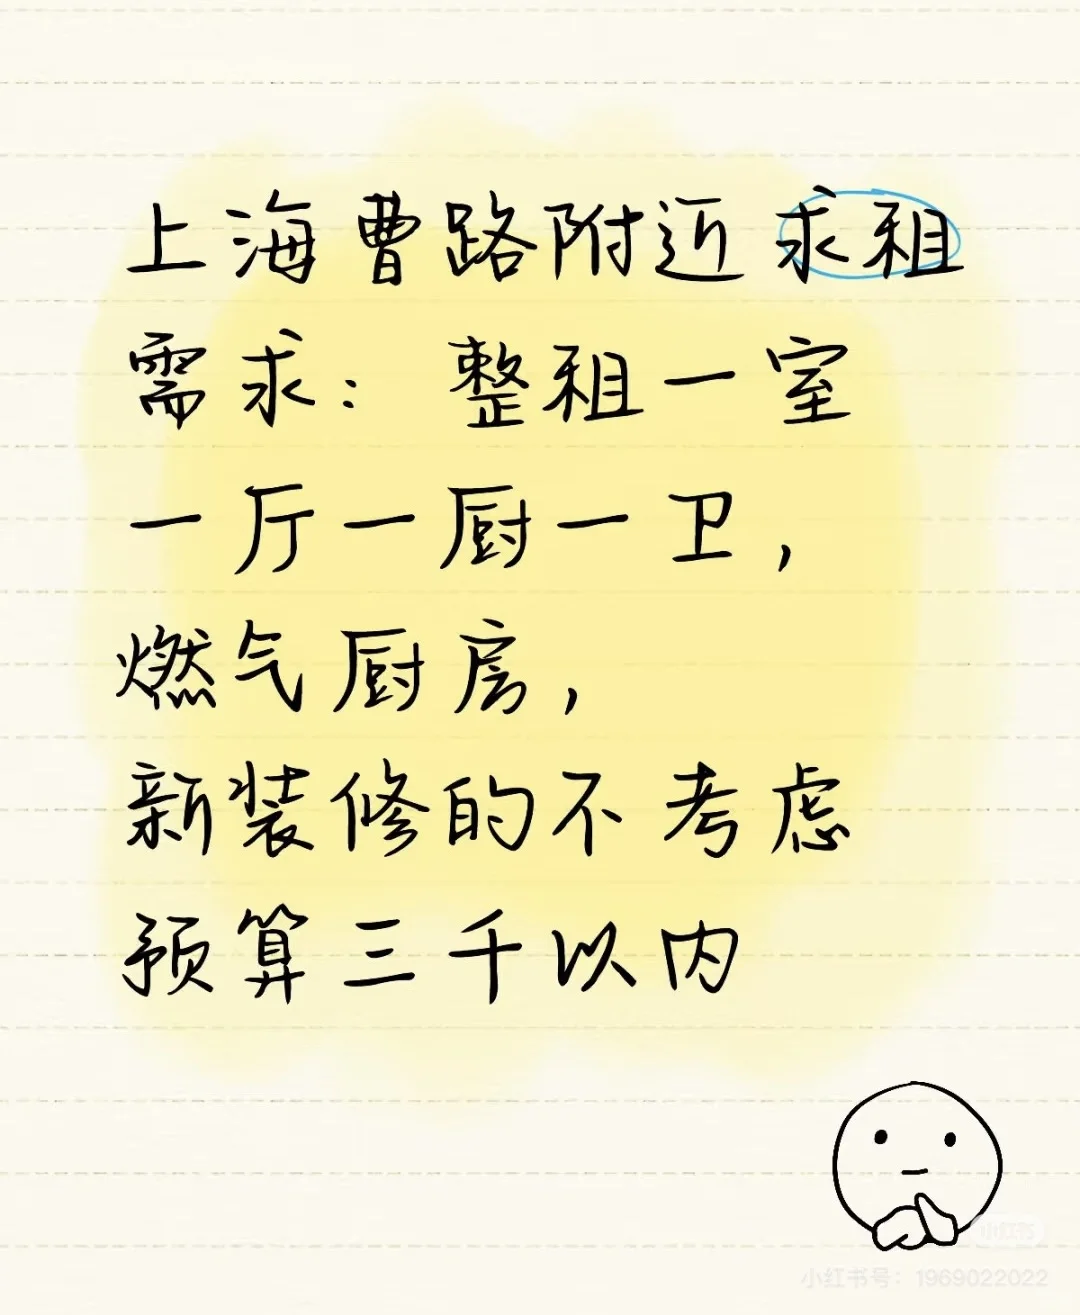 上海曹路附近求租
需求：整租一室
一厅一厨一卫，
燃气厨房，
新装修的不考虑
预算三千以内
小红书
小红书号：1969022022